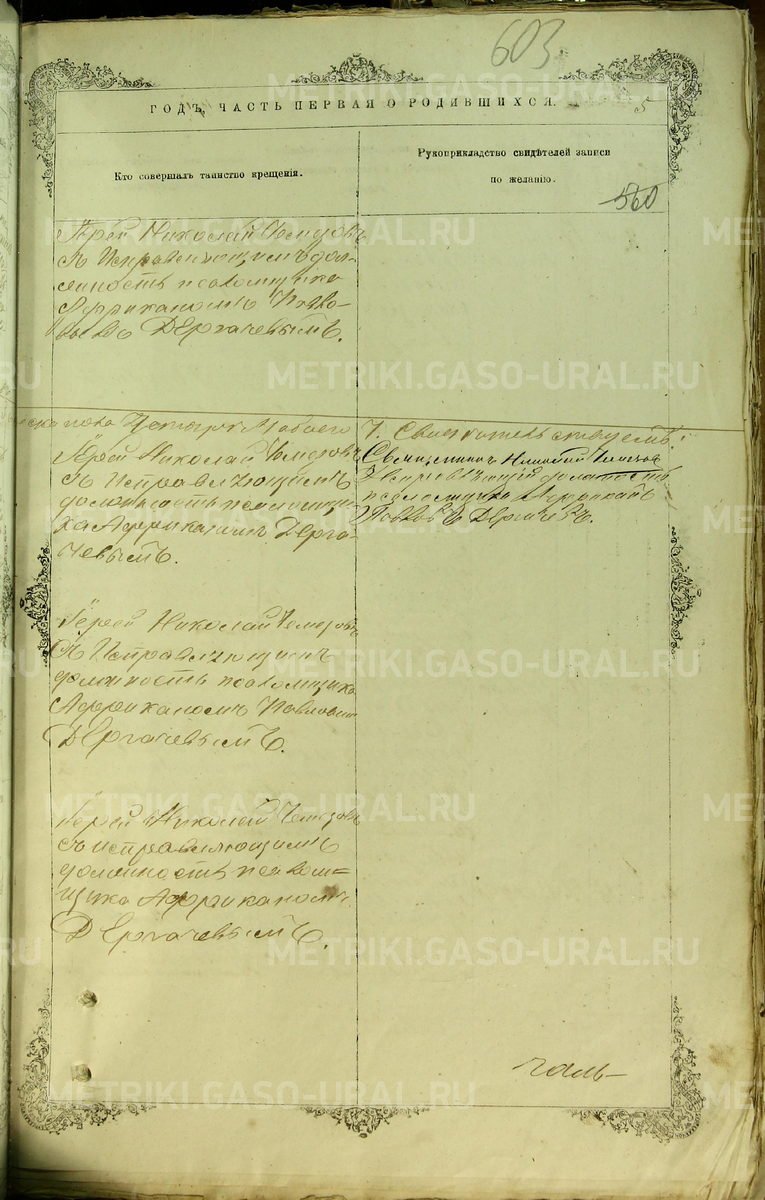 603
ГОДЪ, ЧАСТЬ ПЕРВАЯ О РОДИВШИХСЯ.
5
Кто совершалъ таинство крещенія.
Рукоприкладство свидѣтелей записи
по желанію.
560
Іерей Николай
съ Исправляющимъ дол-
жность псаломщика
Африканомъ Павло-
вымъ Дергачевымъ.
Іерей Николай
съ Исправляющимъ
должность псаломщи-
ка Африканомъ Дерга-
чевымъ.
Священникъ Николай
Исправляющій должность
псаломщика Африканъ
Павловъ Дергачевъ.
Іерей Николай
съ Исправляющимъ
должность псаломщика
Африканомъ Павловым
Дергачевымъ.
Іерей Николай
съ исправляющимъ
должность псалом-
щика Африканомъ
Дергачевымъ.
METRIKI.GASO-URAL.RU